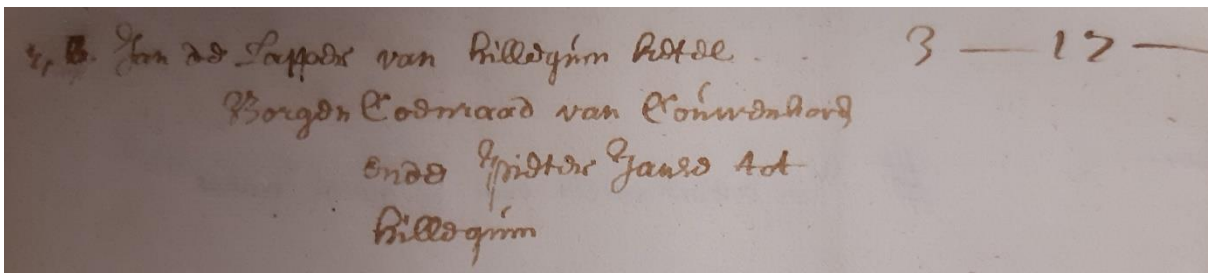 Jan de Lapper van hillegum ketel 3 — 17 —
Borgen Coenraad van Couwenhoven
ende Pieter Janse tot
hillegum